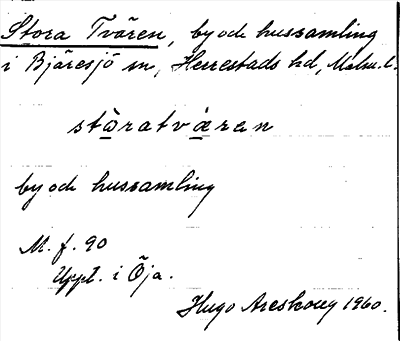 Stora Tvären, by och hussamling
i Bjäresjö sn, Herrestads hd, Malm. l.
stàratvǽran
by och hussamling
M. f. 90
Uppt. i Öja.
Hugo Areskoug 1960.